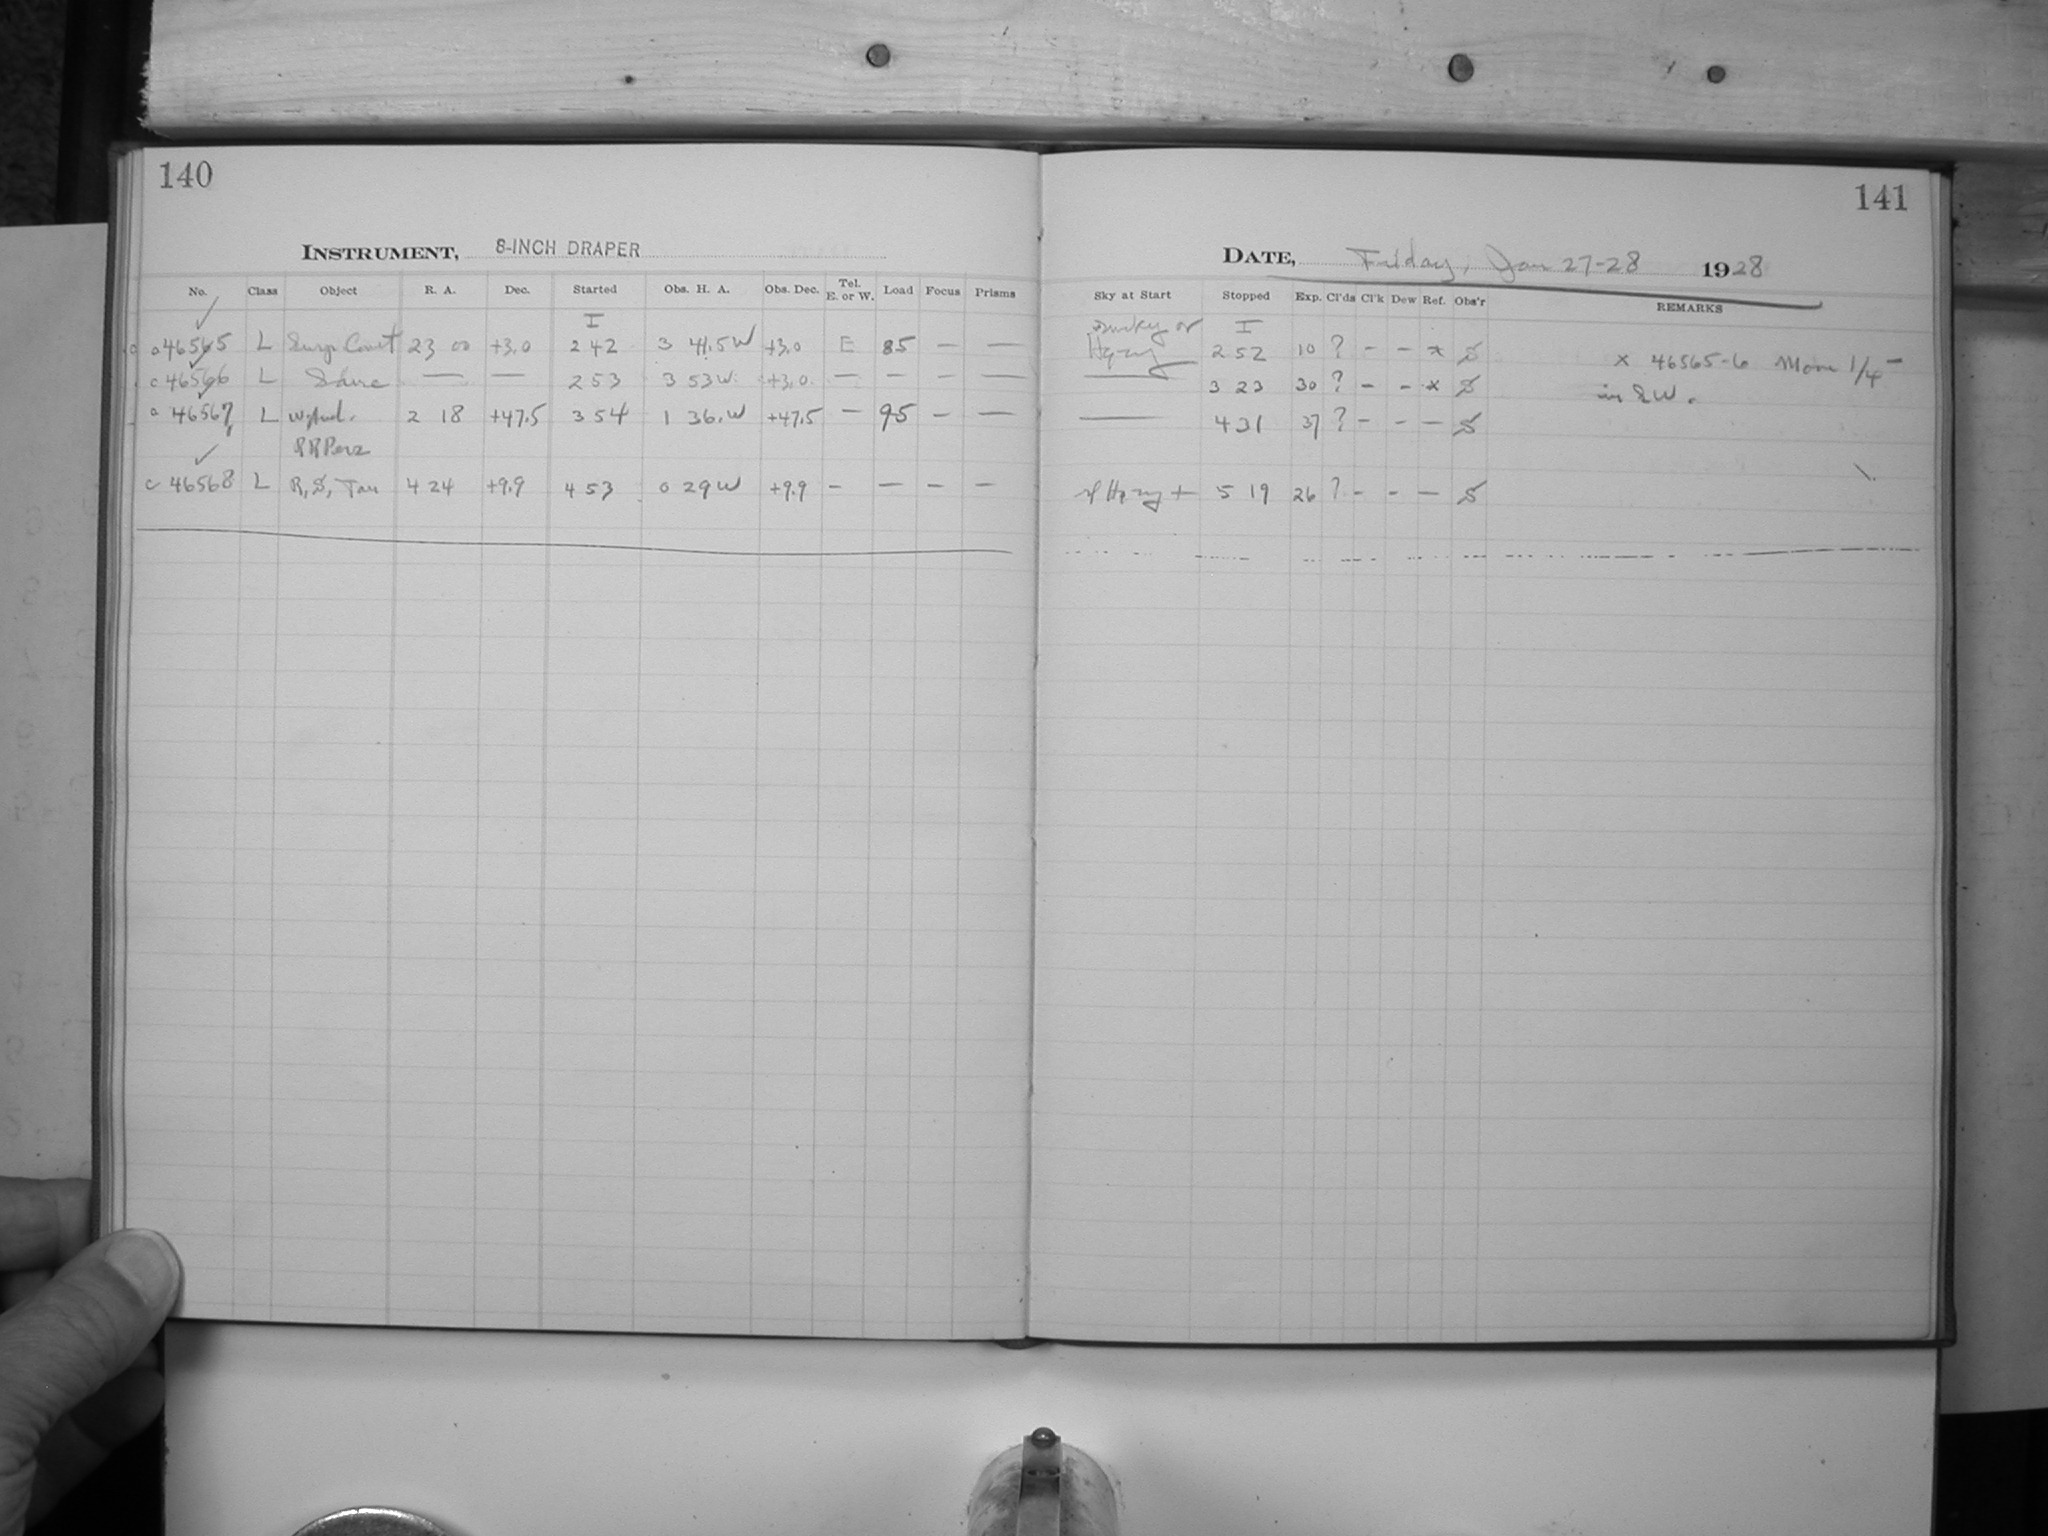 140
INSTRUMENT, 8-INCH DRAPER
No. Class Object R. A. Dec. Started Obs. H. A. Obs. Dec. Tel. E. or W. Load Focus Prisms
I
a 46565 L Comet 23 00 +3.0 2 42 3 41.5 W +3.0 E 85 — —
c 46566 L Same — — 2 53 3 53 W. +3.0 — — — —
a 46567 L W And. 2 18 +47.5 3 54 1 36. W +47.5 — 95 — —
RR Pers
c 46568 L R, S, Tau 4 24 +9.9 4 53 0 29 W +9.9 — — — —
141
DATE, Friday, Jan 27-28 1928
Sky at Start Stopped Exp. Cl'ds Cl'k Dew Ref. Obs'r REMARKS
Smoky or I
Hazy 2 52 10 ? - - x S x 46565-6 Moon 1/4 —
— 3 23 30 ? - - x S in SW.
— 4 31 37 ? - - — S
Hazy + 5 19 26 ? - - — S